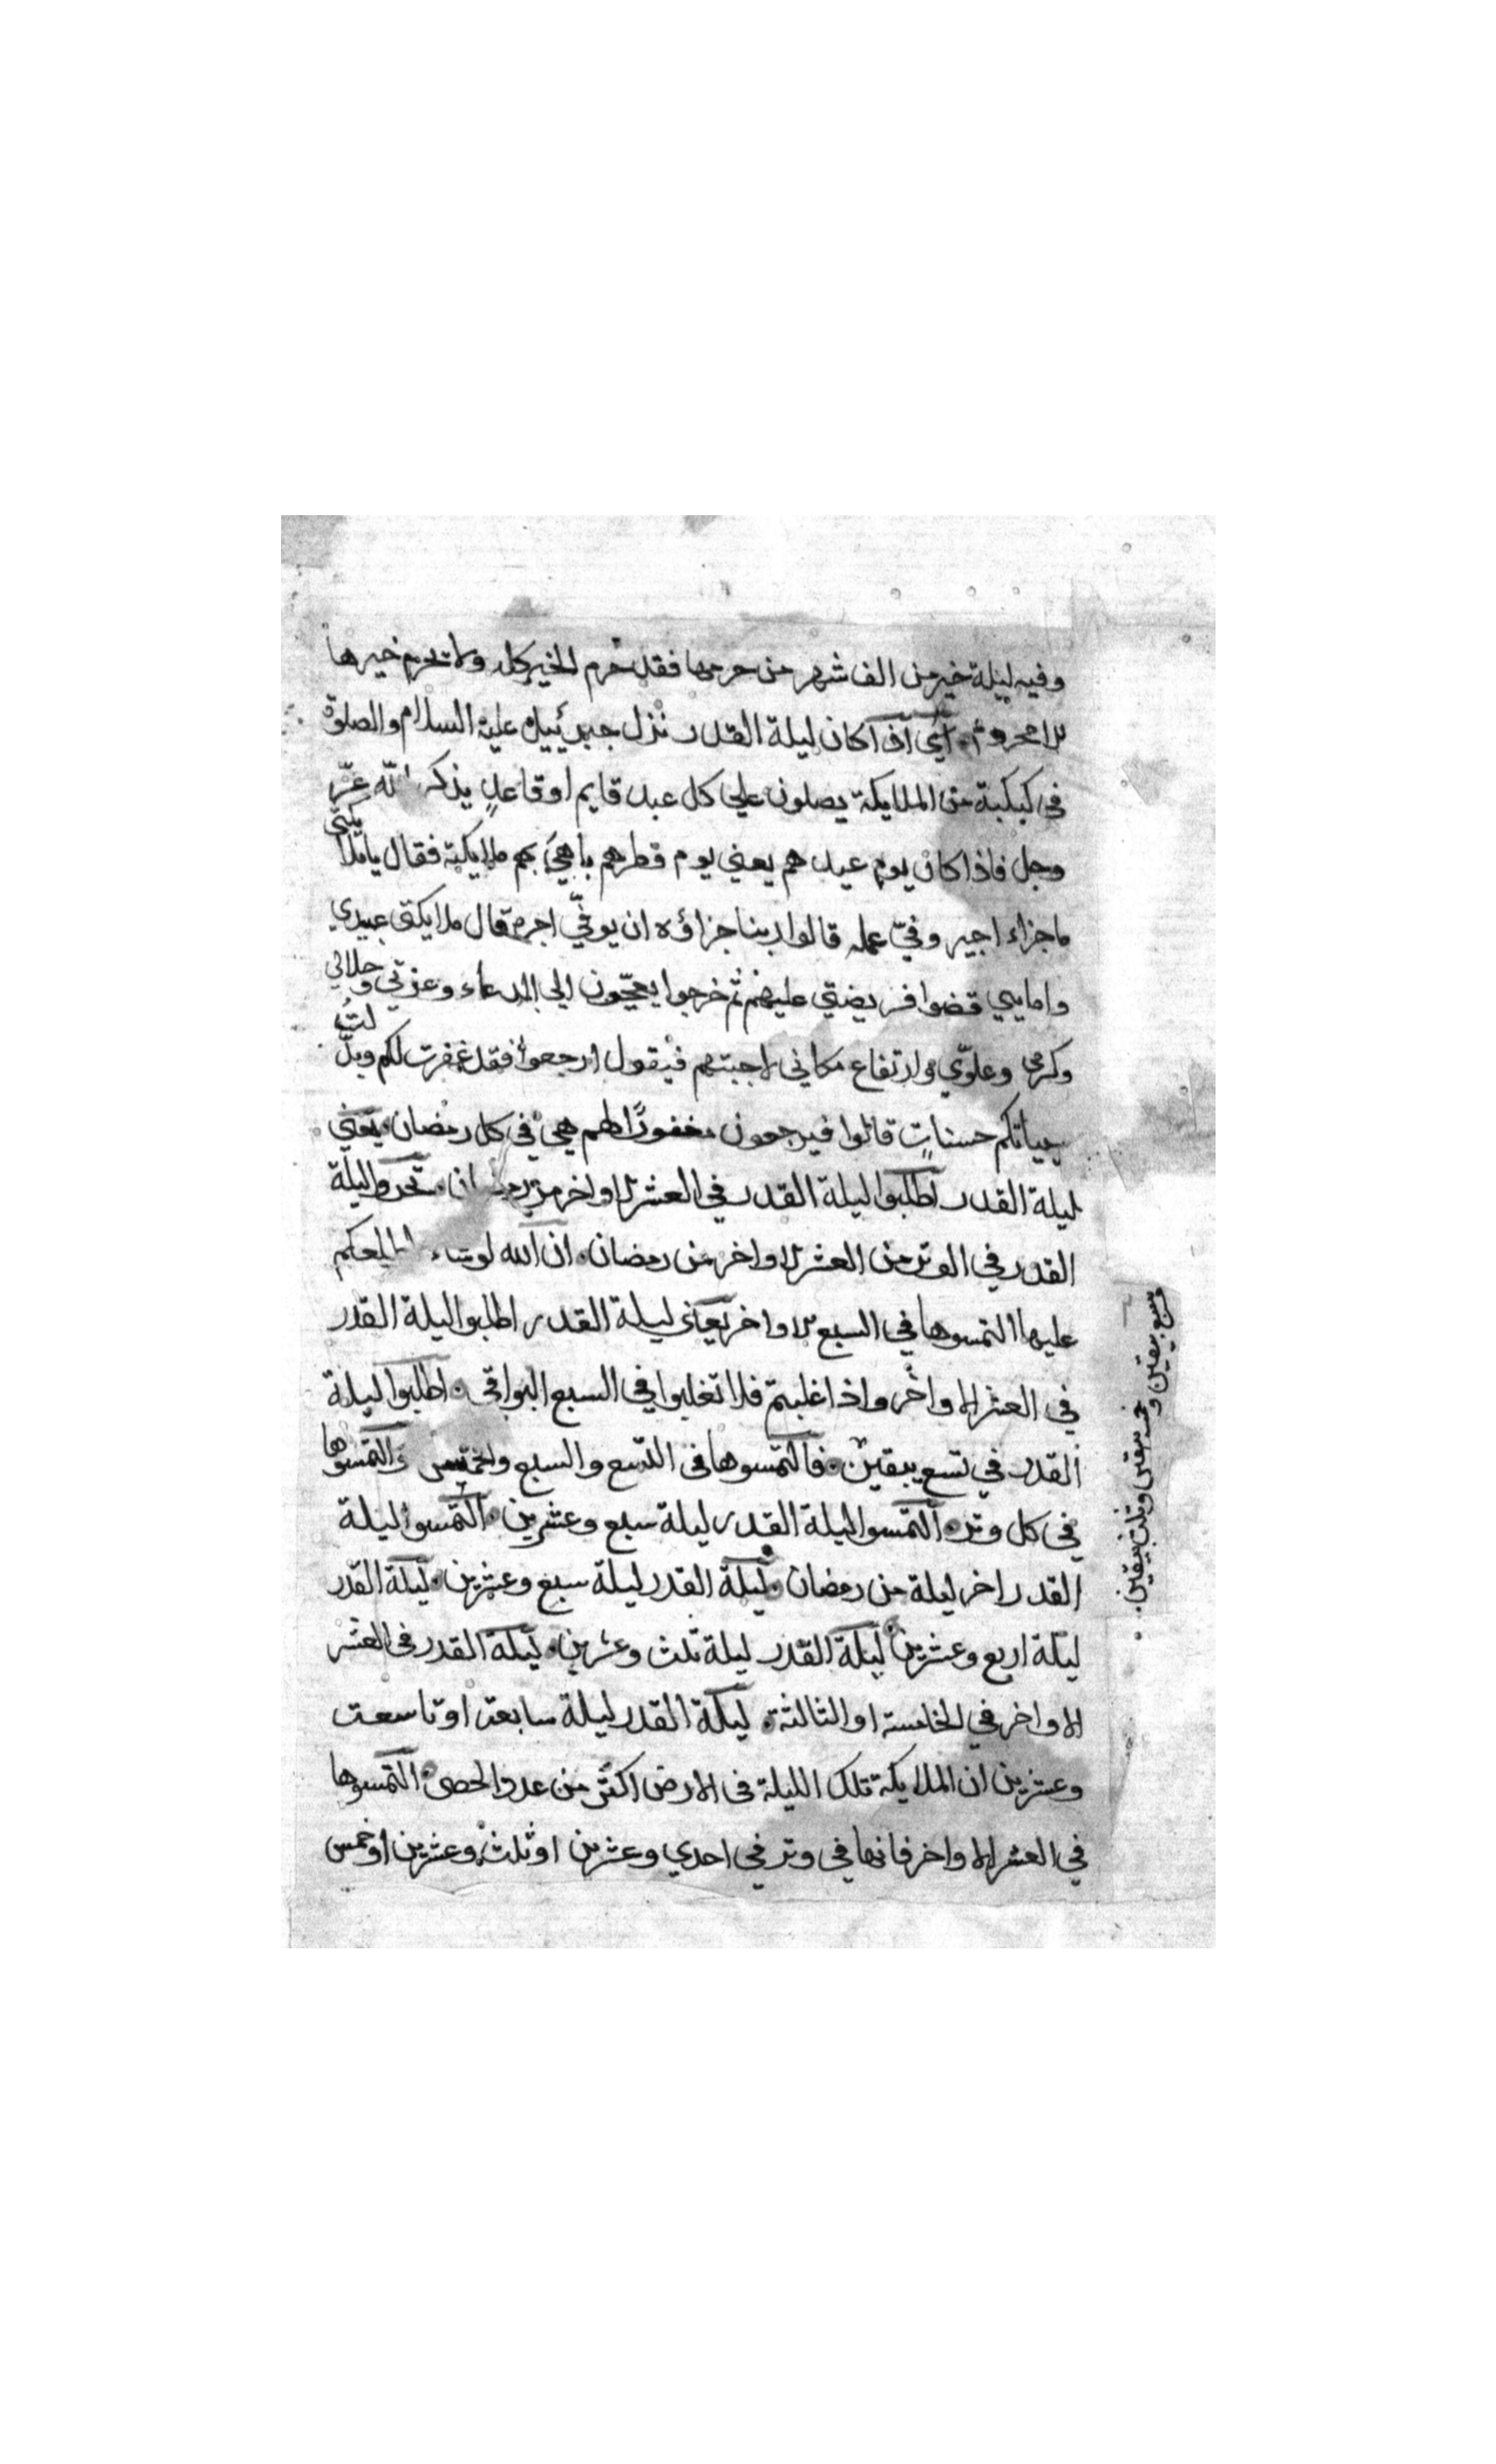 وفيه ليلة خير من الف شهر من حرمها فقد حرم الخير كله ولا تحرم خيرها
الا محروم اذا كان ليلة القدر نزل جبرئييل عليه السلام والصلوة
في كبكبة من الملايكة يصلون علي كل عبد قايم او قاعد يذكر الله عزّ
وجل فاذا كان يوم عيدهم يعني يوم فطرهم باهي بهم ملايكته فقال يا ملايكتي
ما جزاء اجير وفيّ عمله قالوا ربنا جزاؤه ان يوفّي اجره قال ملايكتي عبيدي
وامايي قضوا فريضتي عليهم ثم خرجوا يعجّون الي الدعاء وعزتي وجلالي
وكرمي وعلوّي وارتفاع مكاني لاجبتهم فيقول ارجعوا فقد غفرت لكم وبدّلتُ
سيياتكم حسناتٍ قالوا فيرجعون مغفورًا لهم هي في كل رمضان يعني
ليلة القدر اطلبوا ليلة القدر في العشر الاواخر من رمضان تحروا ليلة
القدر في الوتر من العشر الاواخر من رمضان ان الله لو شاء اطلعكم
عليها التمسوها في السبع الاواخر يعني ليلة القدر اطلبوا ليلة القدر
في العشر الاواخر واذا غلبتم فلا تغلبوا في السبع البواقي اطلبوا ليلة
القدر في تسع يبقين فالتمسوها في التسع والسبع والخمس والتمسوها
في كل وتر التمسوا ليلة القدر ليلة سبع وعشرين التمسوا ليلة
القدر اخر ليلة من رمضان ليلة القدر ليلة سبع وعشرين ليلة القدر
ليلة اربع وعشرين ليلة القدر ليلة ثلث وعشرين ليلة القدر في العشر
الاواخر في الخامسة او الثالثة ليلة القدر ليلة سابعة او تاسعة
وعشرين ان الملايكة تلك الليلة في الارض اكثر من عدد الحصى التمسوها
في العشر الاواخر فانها في وتر في احدي وعشرين او ثلث وعشرين او خمس
وسبع يبقين و
خمس يبقين وثلث يبقين